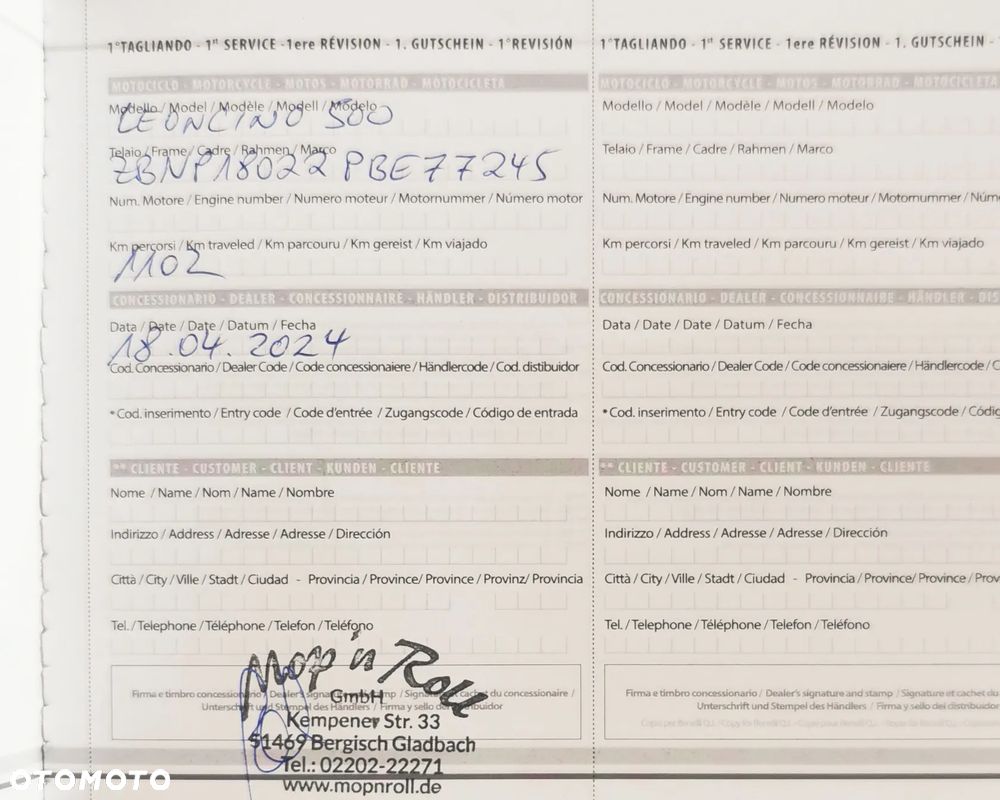 1°TAGLIANDO - 1st SERVICE -1ere RÉVISION - 1. GUTSCHEIN - 1°REVISIÓN
MOTOCICLO - MOTORCYCLE - MOTOS - MOTORRAD - MOTOCICLETA
Modello / Model / Modèle / Modell / Modelo
LEONCINO 500
Telaio / Frame / Cadre / Rahmen / Marco
ZBNP18022PBE77245
Num. Motore / Engine number / Numero moteur / Motornummer / Número motor
Km percorsi / Km traveled / Km parcouru / Km gereist / Km viajado
1102
CONCESSIONARIO - DEALER - CONCESSIONNAIRE - HÄNDLER - DISTRIBUIDOR
Data / Date / Date / Datum / Fecha
18.04.2024
Cod. Concessionario / Dealer Code / Code concessionaiere / Händlercode / Cod. distibuidor
*Cod. inserimento / Entry code / Code d'entrée / Zugangscode / Código de entrada
** CLIENTE - CUSTOMER - CLIENT - KUNDEN - CLIENTE
Nome / Name / Nom / Name / Nombre
Indirizzo / Address / Adresse / Adresse / Dirección
Città / City / Ville / Stadt / Ciudad - Provincia / Province/ Province / Provinz/ Provincia
Tel. / Telephone / Téléphone / Telefon / Teléfono
Mopp'n Roll
Firma e timbro concessionario / Dealer's signature and stamp / Signature et cachet du concessionaire /
Unterschrift und Stempel des Händlers / Firma y sello del distribuidor
GmbH
Kempener Str. 33
51469 Bergisch Gladbach
Tel.: 02202-22271
www.mopnroll.de
1°TAGLIANDO - 1st SERVICE - 1ere RÉVISION - 1. GUTSCHEIN -
MOTOCICLO - MOTORCYCLE - MOTOS - MOTORRAD - MOTOCICLETA
Modello / Model / Modèle / Modell / Modelo
Telaio / Frame / Cadre / Rahmen / Marco
Num. Motore / Engine number / Numero moteur / Motornummer / Núme
Km percorsi / Km traveled / Km parcouru / Km gereist / Km viajado
CONCESSIONARIO - DEALER - CONCESSIONNAIRE - HÄNDLER - DIS
Data / Date / Date / Datum / Fecha
Cod. Concessionario / Dealer Code / Code concessionaiere / Händlercode / C
*Cod. inserimento / Entry code / Code d'entrée / Zugangscode / Códig
** CLIENTE - CUSTOMER - CLIENT - KUNDEN - CLIENTE
Nome / Name / Nom / Name / Nombre
Indirizzo / Address / Adresse / Adresse / Dirección
Città / City / Ville / Stadt / Ciudad - Provincia / Province/ Province / Prov
Tel. / Telephone / Téléphone / Telefon / Teléfono
Firma e timbro concessionario / Dealer's signature and stamp / Signature et cachet du
Unterschrift und Stempel des Händlers / Firma y sello del distribuidor
OTOMOTO